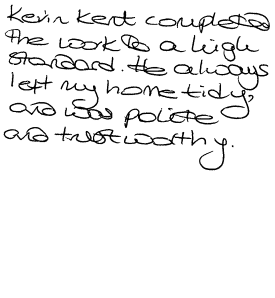 Kevin Kent completed
the work to a high
standard. He always
left my home tidy,
and was polite
and trustworthy.